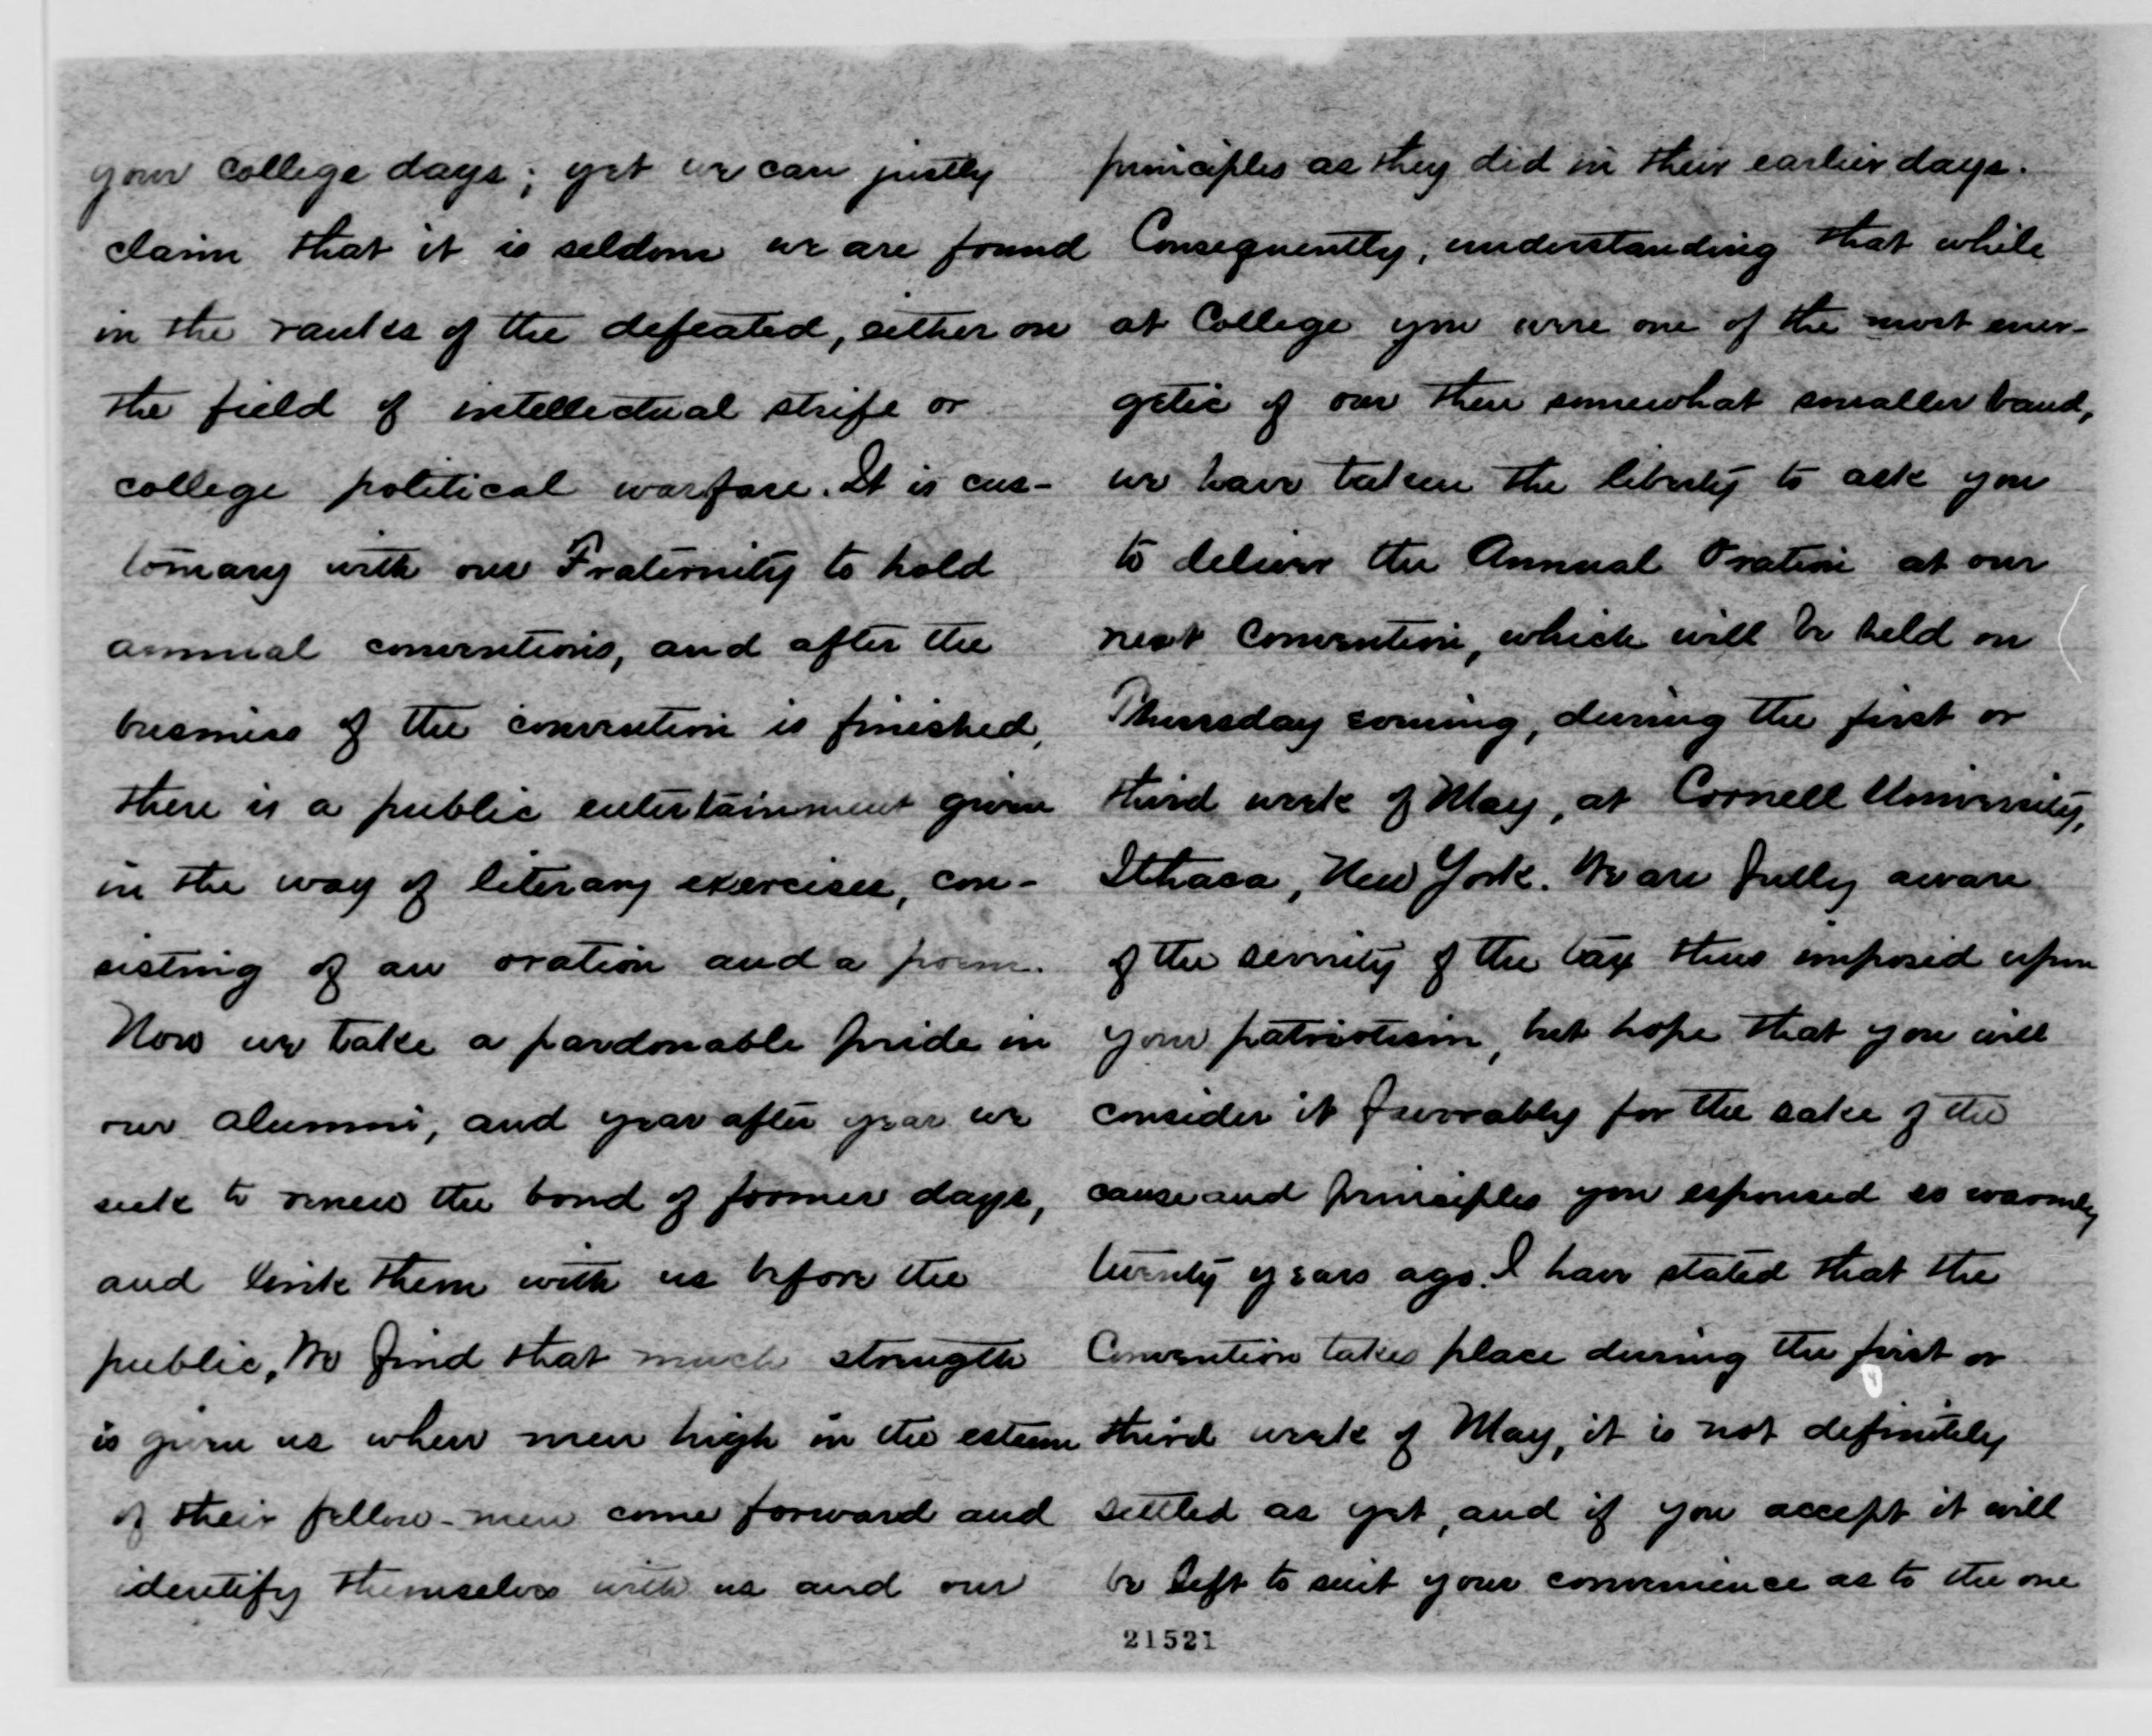 your college days; yet we can justly
claim that it is seldom we are found
in the ranks of the defeated, either on
the field of intellectual strife or
college political warfare. It is cus-
tomary with our Fraternity to hold
annual conventions, and after the
business of the convention is finished,
there is a public entertainment given
in the way of literary exercises, con-
sisting of an oration and a poem.
Now we take a pardonable pride in
our alumni, and year after year we
seek to renew the bond of former days,
and link them with us before the
public. We find that much strength
is given us when men high in the esteem
of their fellow-men come forward and
identify themselves with us and our
principles as they did in their earlier days.
Consequently, understanding that while
at College you were one of the most ener-
getic of our then somewhat smaller band,
we have taken the liberty to ask you
to deliver the Annual Oration at our
next Convention, which will be held on
Thursday coming, during the first or
third week of May, at Cornell University,
Ithaca, New York. We are fully aware
of the severity of the tax thus imposed upon
your patriotism, but hope that you will
consider it favorably for the sake of the
cause and principles you espoused so warmly
twenty years ago. I have stated that the
Convention takes place during the first or
third week of May, it is not definitely
settled as yet, and if you accept it will
be left to suit your convenience as to the one
21521